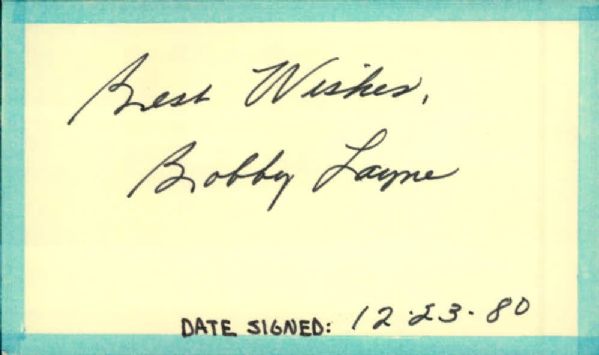 Best Wishes,
Bobby Layne
DATE SIGNED: 12-23-80